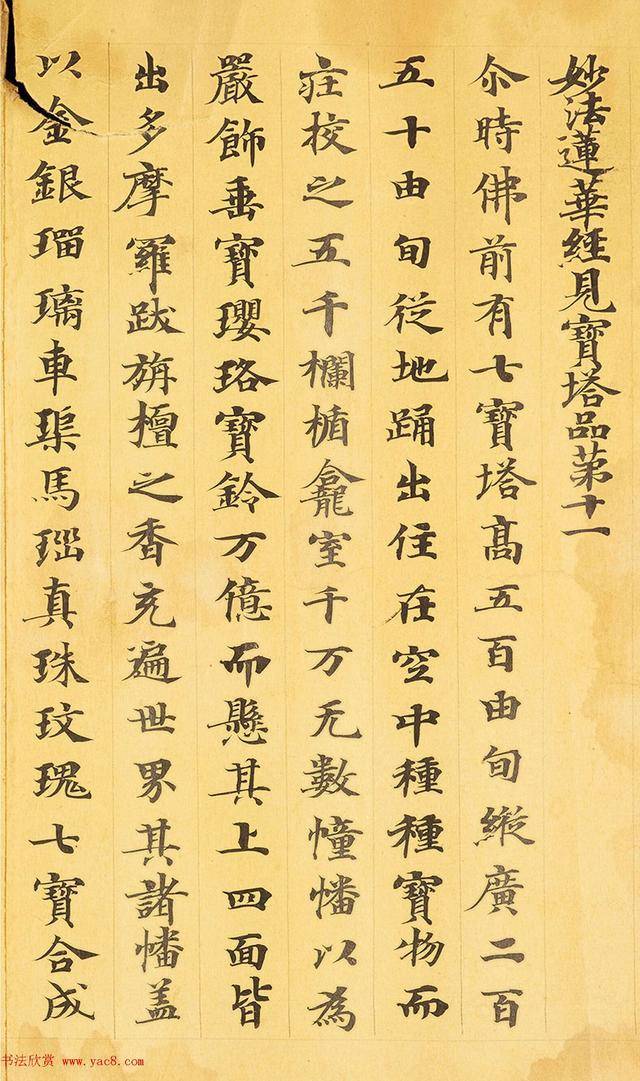 妙法蓮華經見寶塔品苐十一
尒時佛前有七寶塔髙五百由旬縱廣二百
五十由旬從地踊出住在空中種種寶物而
莊校之五千欄楯龕室千万无數幢幡以為
嚴飾垂寶瓔珞寶鈴万億而懸其上四面皆
出多摩羅跋旃檀之香充遍世界其諸幡盖
以金銀瑠璃車璖馬瑙真珠玟瑰七寶合成
书法欣赏 www.yac8.com